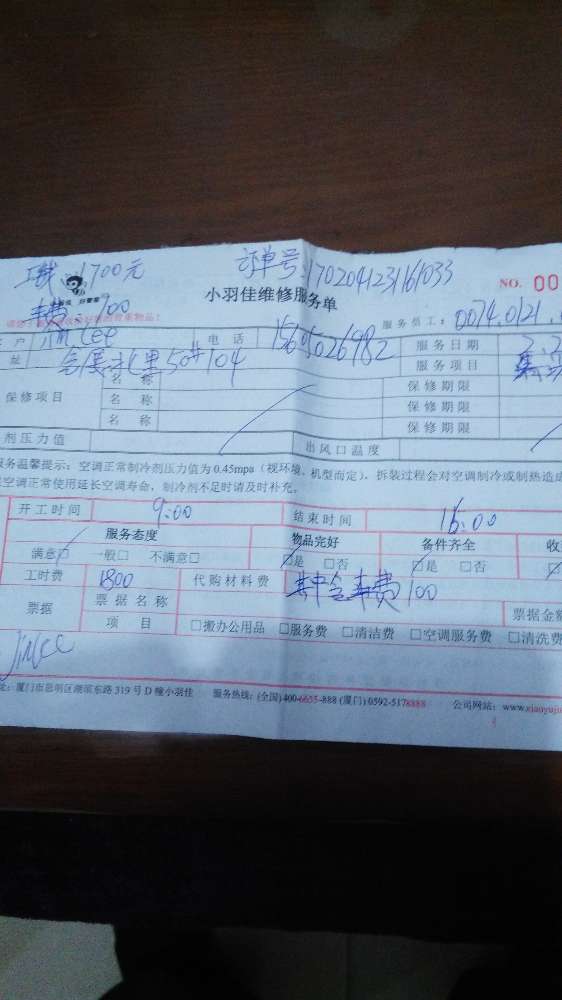 1700元 订单号:170204123161033
小羽佳维修服务单 NO. 00
车费:100 服务员工: 0074.0121.
户 Lee 电 话 15605026982 服 务 日 期
址 里50#104 服 务 项 目
保修项目 名 称 保 修 期 限
名 称 保 修 期 限
名 称 保 修 期 限
剂压力值 出风口温度
服务温馨提示:空调正常制冷剂压力值为 0.45mpa(视环境、机型而定),拆装过程会对空调制冷或制热造成
空调正常使用延长空调寿命,制冷剂不足时请及时补充。
开工时间 9:00 结束时间 16:00
服务态度 物品完好 备件齐全 收
满意□ 一般□ 不满意□ □是 □否 □是 □否
工时费 1800 代购材料费 其中含车费100
票据 票 据 名 称 票据金额
项 目 □搬办公用品 □服务费 □清洁费 □空调服务费 □清洗费
址:厦门市思明区湖滨东路 319 号 D 幢小羽佳 服务热线:(全国)400-6655-888 (厦门)0592-5178888 公司网站:www.xiaoyuj